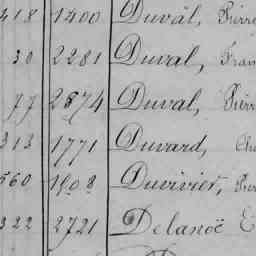 418 1400 Duval, Pierre
30 2281 Duval, Fran
77 2574 Duval, Pierr
313 1771 Duvard, Ch
560 1908 Duvivier, Pier
322 2721 Delanoë E